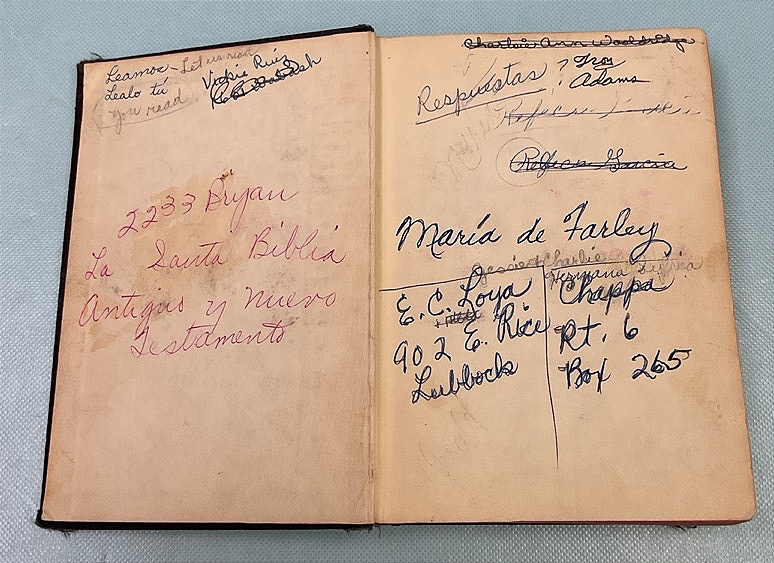 Leamos - Let us read
Lealo tú
You read
Vickie Ruiz
2233 Bryan
La Santa Biblia
Antiguo y Nuevo
Testamento
Charlsie Ann
Respuestas ? Troy
Adams
Rebecca Garcia
María de Farley
Jessie & Charlie
E. C. Loya
902 E. Rice
Lubbock
Hermana
Chappa
Rt. 6
Box 265